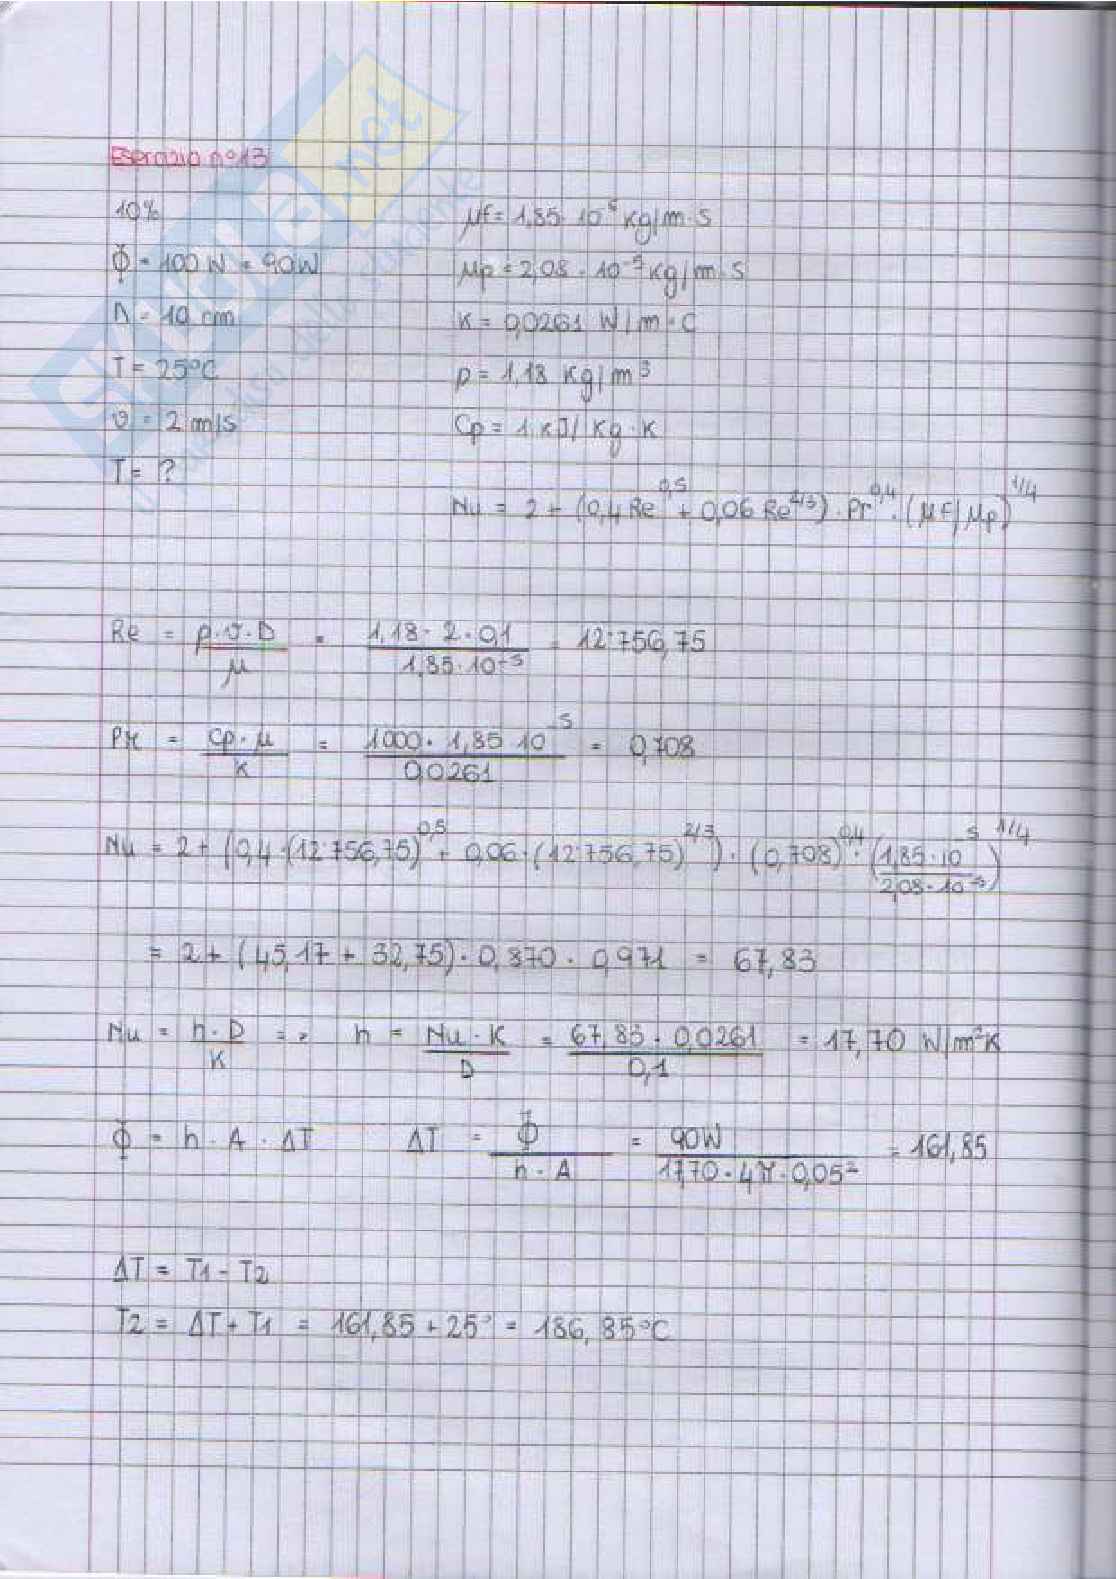 Esercizio n°13
10%
Φ = 100 W = 90W
D = 10 cm
T = 25°C
v = 2 m/s
T = ?
μf = 1,85 · 10⁻⁵ kg/m·s
μp = 2,08 · 10⁻⁵ kg/m·s
K = 0,0261 W/m·C
ρ = 1,18 kg/m³
Cp = 1 kJ/kg·K
Nu = 2 + (0,4 Re^0,5 + 0,06 Re^2/3) · Pr^0,4 · (μf/μp)^1/4
Re = ρ·v·D / μ = 1,18 · 2 · 0,1 / 1,85·10⁻⁵ = 12'756,75
Pr = Cp·μ / K = 1000 · 1,85 10⁻⁵ / 0,0261 = 0,708
Nu = 2 + (0,4·(12'756,75)^0,5 + 0,06·(12'756,75)^2/3) · (0,708)^0,4 · (1,85·10⁻⁵ / 2,08·10⁻⁵)^1/4
= 2 + (45,17 + 32,75) · 0,870 · 0,971 = 67,83
Nu = h·D / K => h = Nu · K / D = 67,83 · 0,0261 / 0,1 = 17,70 W/m²K
Φ = h · A · ΔT ΔT = Φ / h·A = 90W / 17,70 · 4π · 0,05² = 161,85
ΔT = T1 - T2
T2 = ΔT + T1 = 161,85 + 25° = 186,85°C